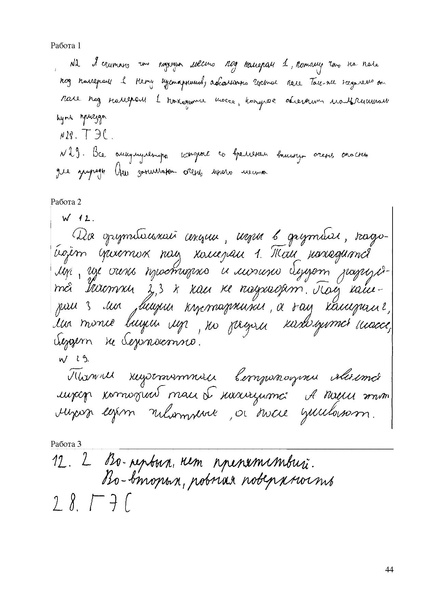 Работа 1
N2 Я считаю что подходит место под номером 1, потому что на поле
под номером 1 нету кустарников, абсолютно чистое поле Так-же недалеко от
поле под номером 1 находится шоссе, которое
путь приезда
N28. ТЭС.
N29. Все аккумулятора которые со временем очень опасны
для природы Они занимают очень много места
Работа 2
N 12.
Для футбольной секции, игры в футбол, подо-
йдёт участок под номером 1. Там находится
луг, где очень просторно и можно будет
Участки 2, 3 к нам не подходят. Под номе-
ром 3 мы видим кустарники, а под номером 2,
мы тоже видим луг, но рядом находится шоссе,
будет не безопасно.
N 29.
Таким недостатком является
мусор который там находится А потом этот
мусор едят животные, а после умирают.
Работа 3
12. 2 Во-первых, нет препятствий.
Во-вторых, ровная поверхность
28. ГЭС
44